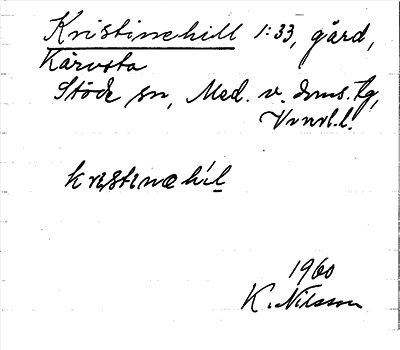 Kristinehill 1:33, gård,
Kärvsta
Stöde sn, Med. v. doms. tg,
Vnorl.l.
kristinæhil
1960
K. Nilsson